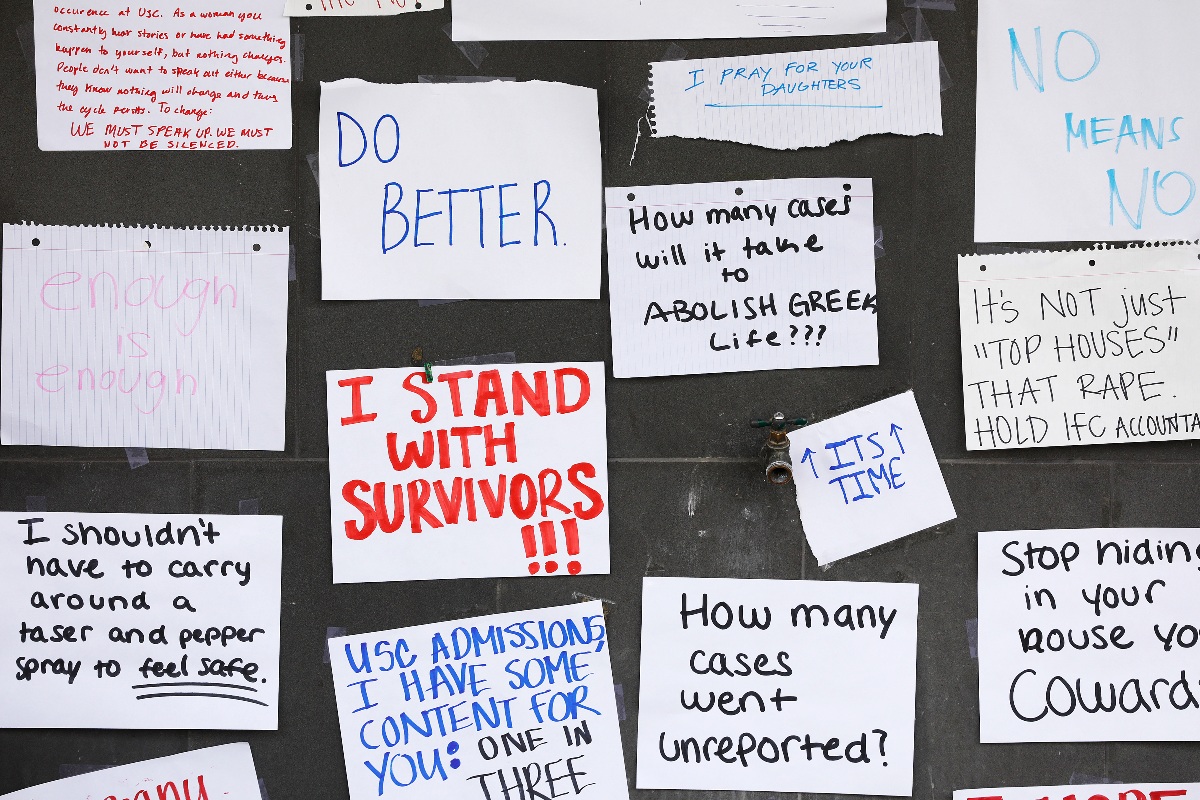 occurence at USC. As a woman you
constantly hear stories or have had something
happen to yourself, but nothing changes.
People don't want to speak out either because
they know nothing will change and thus
the cycle persists. To change:
WE MUST SPEAK UP. WE MUST
NOT BE SILENCED.
DO
BETTER.
I PRAY FOR YOUR
DAUGHTERS
NO
MEANS
NO
enough
is
enough
How many cases
will it take
to
ABOLISH GREEK
Life???
It's NOT just
"TOP HOUSES"
THAT RAPE.
HOLD IFC ACCOUNTA
I STAND
WITH
SURVIVORS
!!!
↑ ITS ↑
TIME
I shouldn't
have to carry
around a
taser and pepper
spray to feel safe.
USC ADMISSIONS,
I HAVE SOME
CONTENT FOR
YOU: ONE IN
THREE
How many
cases
went
unreported?
Stop hiding
in your
house yo
Coward
many.
I HOPE